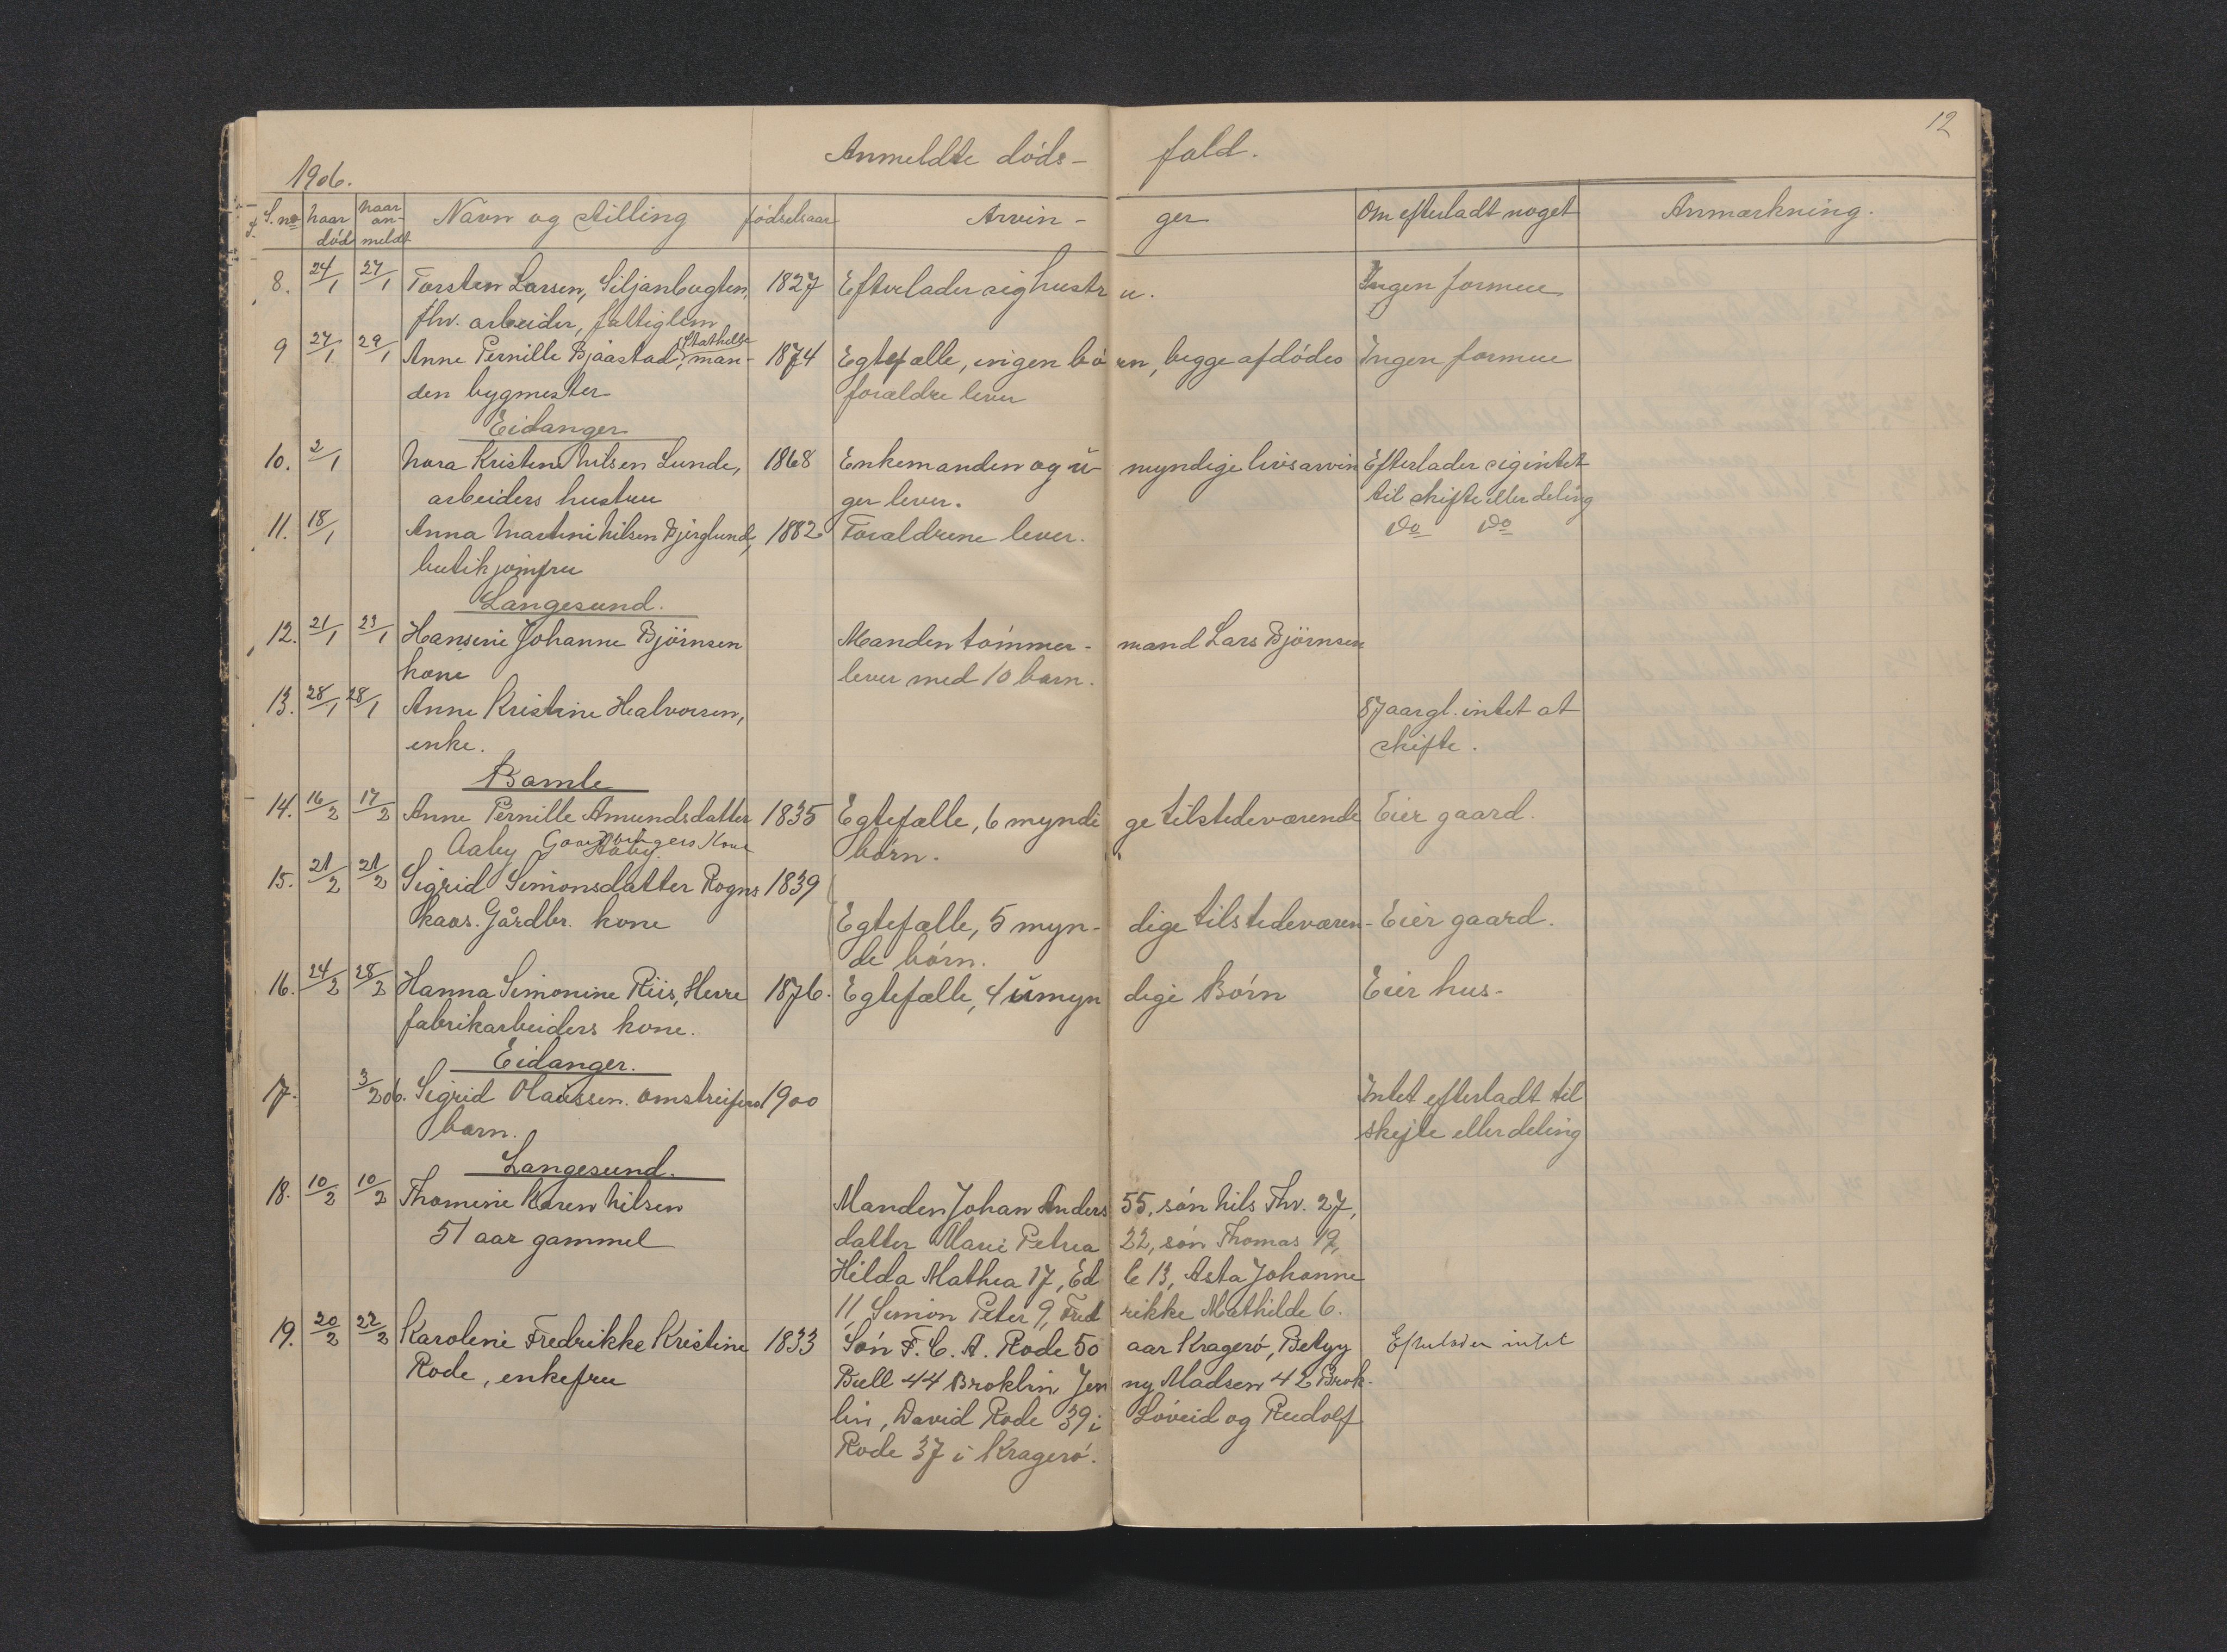 12
Anmeldte døds- fald.
1906.
L. no naar død naar an- meldt Navn og stilling fødselsaar Arvin- ger Om efterladt noget Anmærkning.
8. 24/1 27/1 Torsten Larsen, Siljanbugten, 1827 Efterlader sig hustr u. Ingen formue
fhv. arbeider, fattiglem
9 27/1 29/1 Anne Pernille Bjaastad, Stathelle man- 1874 Egtefælle, ingen bø rn, begge afdødes Ingen formue
den bygmester forældre lever
Eidanger
10. 2/1 Nora Kristine Nilsen Lunde, 1868 Enkemanden og u- myndige livsarvin Efterlader sig intet
arbeiders hustru ger lever. til skifte eller deling
11. 18/1 Anna Martini Nilsen Bjerglund, 1882 Forældrene lever. Do Do
butikjomfru
Langesund.
12. 21/1 23/1 Hansine Johanne Bjørnsen Manden tømmer- mand Lars Bjørnsen
kone lever med 10 barn.
13. 28/1 28/1 Anne Kristine Halvorsen, 87 aar gl. intet at
enke. skifte.
Bamle
14. 16/2 17/2 Anne Pernille Amundsdatter 1835 Egtefælle, 6 myndi ge tilstedeværende Eier gaard.
Aaby Kone børn.
15. 21/2 21/2 Sigrid Simonsdatter Rogns 1839
kaas. Gårdbr. kone Egtefælle, 5 myn- dige tilstedeværen- Eier gaard.
de børn.
16. 24/2 28/2 Hanna Simonine Riis, Herre 1876. Egtefælle, 4 umyn dige Børn Eier hus.
fabrikarbeiders kone.
Eidanger.
17. 3/2 06. Sigrid Olaussen. omstreifers 1900 Intet efterladt til
barn. skejte eller deling
Langesund.
18. 10/2 10/2 Thomine Karen Nilsen Manden Johan Anders 55, søn Nils Thv. 27,
51 aar gammel datter Marie Petrea 22, søn Thomas 19,
Hilda Mathea 17, Ed le 13, Asta Johanne
11, Simon Peter 9, Fred rikke Mathilde 6.
19. 20/2 22/2 Karoline Fredrikke Kristine 1833 Søn F. C. A. Rode 50 aar Kragerø, Betzy Efterlader intet
Rode, enkefru Bull 44 Broklin Jen ny Madsen 42 Brok-
lin, David Rode 39 i Løveid og Rudolf
Rode 37 i Kragerø.